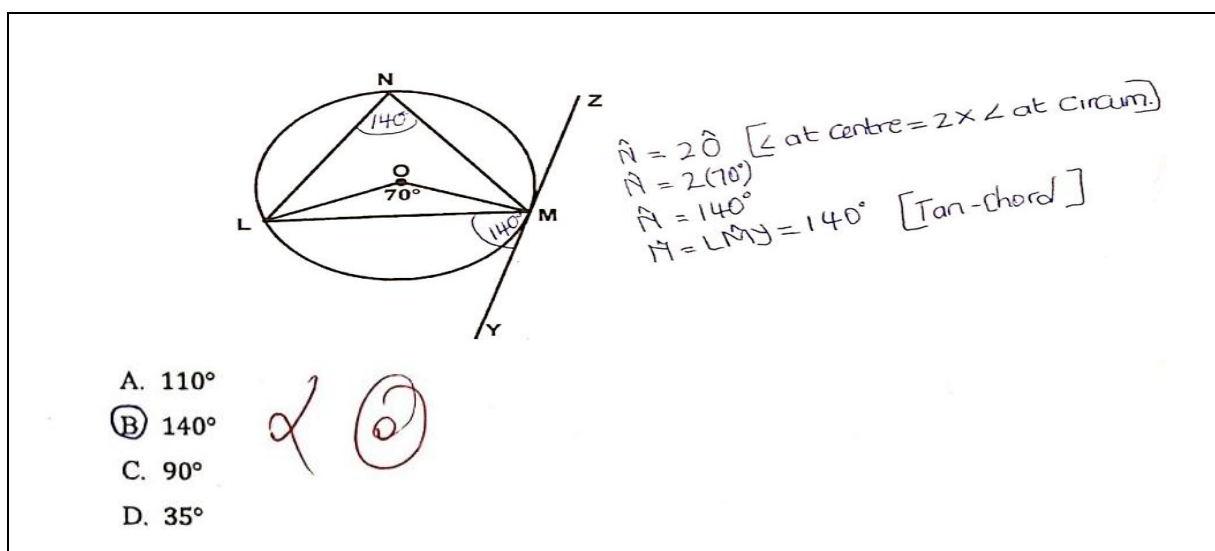 N
Z
140°
O
70°
L
M
140°
Y
N̂ = 2Ô [∠ at centre = 2 × ∠ at circum.]
N̂ = 2(70°)
N̂ = 140°
N̂ = LM̂Y = 140° [Tan-chord]
A. 110°
B 140°
C. 90°
D. 35°